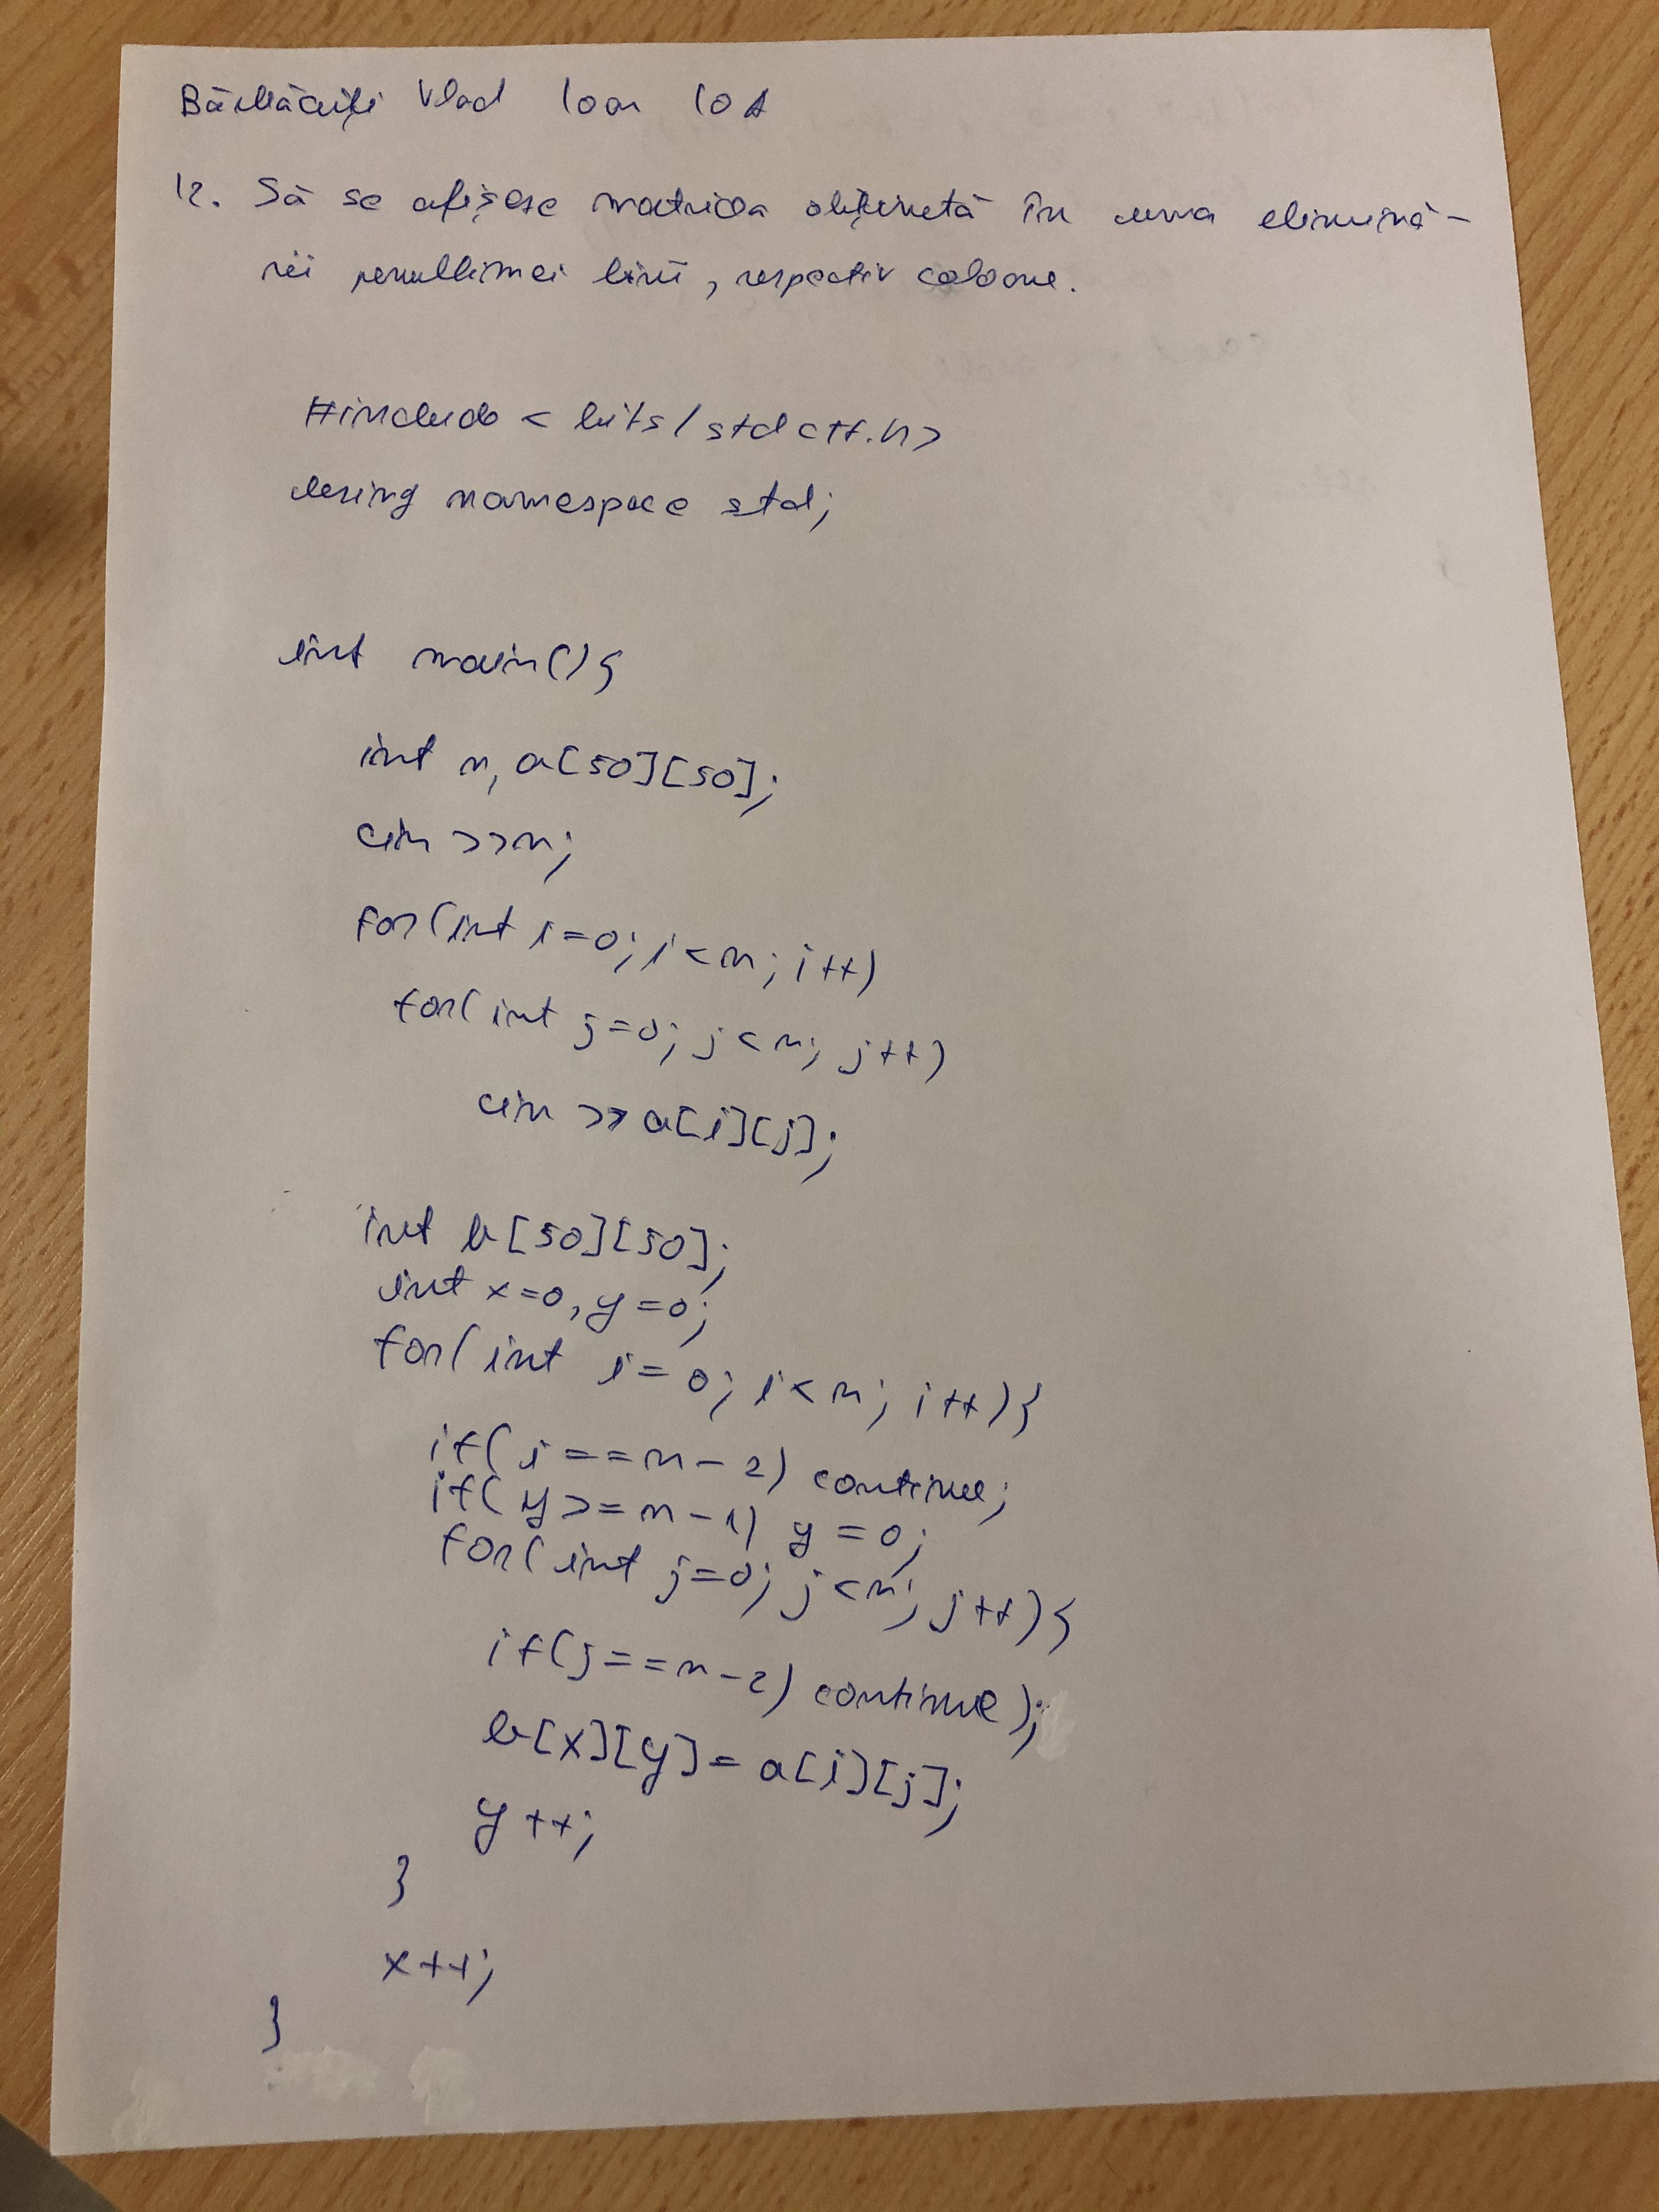 Vlad Ioan 10A
12. Să se afișeze matricea obținută în urma elimină-
rii penultimei linii, respectiv coloane.
#include < bits / stdc++.h>
using namespace std;
int main(){
int n, a[50][50];
cin >>n;
for(int i=0; i<n; i++)
for(int j=0; j<n; j++)
cin >> a[i][j];
int b[50][50];
int x=0, y=0;
for(int i=0; i<n; i++){
if(i==n-2) continue;
if(y>=n-1) y=0;
for(int j=0; j<n; j++){
if(j==n-2) continue);
b[x][y]=a[i][j];
y++;
}
x++;
}